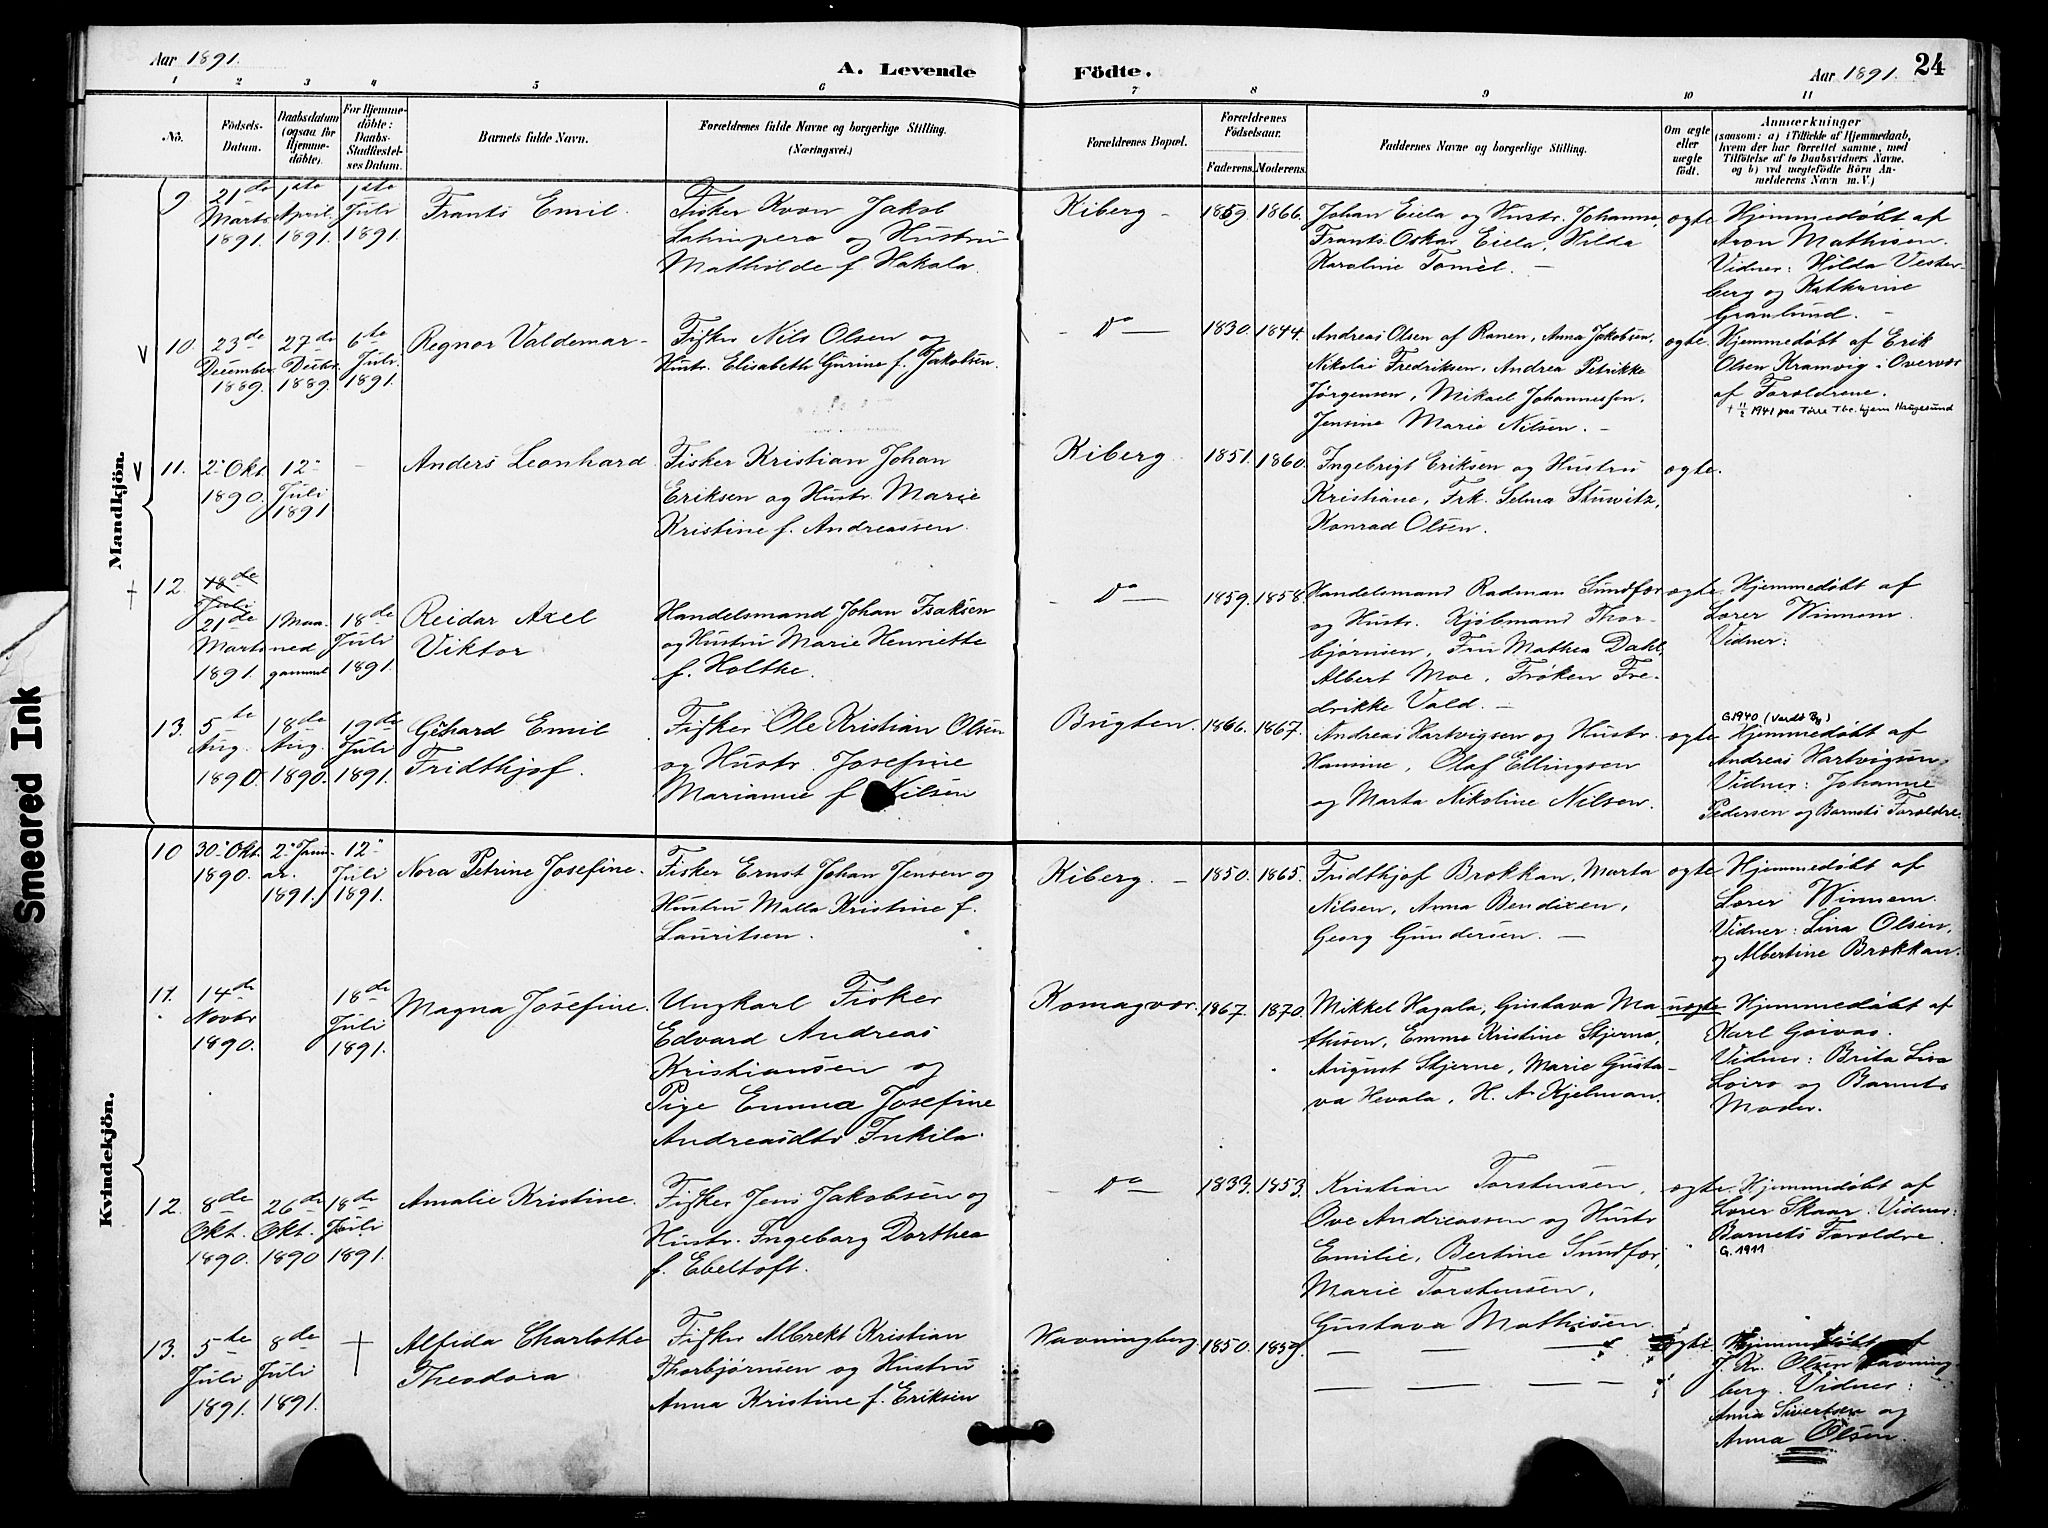 Aar 1891.
A. Levende Födte.
Aar 1891. 24
1 2 3 4 5 6 7 8 9 10 11
No.
Födsels-Datum.
Daabsdatum (ogsaa for Hjemmedöbte).
For Hjemmedöbte: Daabs-Stadfæstelses Datum.
Barnets fulde Navn.
Forældrenes fulde Navne og borgerlige Stilling.
(Næringsvei.)
Forældrenes Bopæl.
Forældrenes Födselsaar.
Faderens. Moderens.
Faddernes Navne og borgerlige Stilling.
Om ægte eller uægte födt.
Anmærkninger
(saasom: a) i Tilfælde af Hjemmedaab, hvem der har forrettet samme, med Tilföielse af to Daabsvidners Navne. og b) ved uægtefödte Börn Anmelderens Navn m. V.)
Mandkjön.
9 21de Marts 1891. 1ste April 1891. 1ste Juli 1891.
Frants Emil.
Fisker Kvon Jakob
Lahinpera og Hustru
Mathilde f. Hakala.
Kiberg – 1859. 1866.
Johan Eiela og Hustr. Johanna,
Frants Oskar Eiela, Hilda
Karoline Tomèl. –
ægte.
Hjemmedøbt af
Aron Mathisen.
Vidner: Hilda Vester-
berg og Kathrine
Granlund. –
V 10. 23de December 1889. 27de Decbr. 1889. 6te Juli 1891.
Regnor Valdemar –
Fisker Nils Olsen og
Hustr. Elisabeth Gurine f. Jakobsen.
– Do – 1830. 1844.
Andreas Olsen af Ranen, Anna Jakobsen,
Nikolai Fredriksen, Andrea Petrikke
Jørgensen, Mikael Johannessen,
Jensine Marie Nilsen. –
ægte.
Hjemmedøbt af Erik
Olsen Kramvig i Overvær
af Forældrene.
† 11/2 1941 paa Tøre Tbc. hjem Haugesund
V 11. 2. Okt. 1890. 12. Juli 1891 –
Anders Leonhard.
Fisker Kristian Johan
Eriksen og Hustr. Marie
Kristine f. Andreassen.
Kiberg – 1851. 1860.
Ingebrigt Eriksen og Hustru
Kristiane, Frk. Selma Stuwitz,
Konrad Olsen.
ægte.
† 12. 18de Juli 21de Marts 1891. 1 Maaned gammel 18de Juli 1891.
Reidar Axel
Viktor
Handelsmand Johan Isaksen
og Hustru Marie Henriette
f. Holtke.
– Do – 1859. 1858.
Handelsmand Radman Sundfær
og Hustr. Kjøbmand Thor-
bjørnsen, Fru Mathea Dahl,
Albert Moe, Frøken Fre-
drikke Vald. –
ægte.
Hjemmedøbt af
Lærer Winnem.
Vidner:
13. 5te Aug. 1890. 18de Aug. 1890. 19de Juli 1891.
Gehard Emil
Fridthjof.
Fisker Ole Kristian Olsen
og Hustr. Josefine
Marianne f. Nilsen
Bugten. 1866. 1867.
Andreas Hartvigsen og Hustr.
Hansine, Olaf Ellingsen
og Marta Nikoline Nilsen.
ægte
G. 1940 (Vardø By)
Hjemmedøbt af
Andreas Hartvigsen,
Vidner: Johanne
Pedersen og Barnets Forældre.
Kvindekjön.
10 30. Okt. 1890. 2. Januar. 1891. 12. Juli 1891.
Nora Petrine Josefine.
Fisker Ernst Johan Jensen og
Hustru Malla Kristine f.
Lauritsen.
Kiberg. – 1850. 1865.
Fridthjof Brokkan, Marta
Nilsen, Anna Bendixen,
Georg Gundersen. –
ægte
Hjemmedøbt af
Lærer Winnem.
Vidner: Lina Olsen,
og Albertine Brokkan.
11. 14de Novbr 1890. 18de Juli 1891.
Magna Josefine.
Ungkarl Fisker
Edvard Andreas
Kristiansen og
Pige Emma Josefine
Andreasdtr. Inkila.
Komagvær. 1867. 1870.
Mikkel Hagala, Gustava Ma-
thisen, Emma Kristine Stjerna,
August Stjerne, Marie Gusta-
va Hevala, H. A. Kjelman.
uægte
Hjemmedøbt af
Karl Goivas.
Vidner: Brita Liva
Loiro og Barnets
Moder.
12. 8de Okt. 1890. 26de Okt. 1890 18de Juli 1891.
Amalie Kristine.
Fisker Jens Jakobsen og
Hustr. Ingeborg Dorthea
f. Ebeltoft.
– Do – 1833. 1853.
Kristian Torstensen,
Ove Andreassen og Hustr
Emilie, Bertine Sundfær,
Marie Torstensen,
Gustava Mathisen.
ægte.
Hjemmedøbt af
Lærer Skaar. Vidner:
Barnets Forældre.
G. 1911
13. 5te Juli 1891. 8de Juli 1891. †
Alfida Charlotte
Theodora
Fisker Albrekt Kristian
Thorbjørnsen og Hustru
Anna Kristine f. Eriksen
Havningberg 1850. 1859.
– – – –
– – – –
ægte.
Hjemmedøbt af
J. Kr. Olsen Havning-
berg. Vidner:
Anna Sivertsen og
Anna Olsen.
Smeared Ink